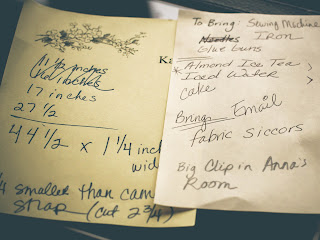 17 inches
27 1/2
44 1/2 x 1 1/4 inch
wid
1/4 smaller than cam
strap (cut 2 3/4)
Ka
To Bring: Sewing Machine
Needles Iron
glue guns
* Almond Ice Tea
Iced Water
cake
Bring Email
fabric siccors
Big Clip in Anna's
Room